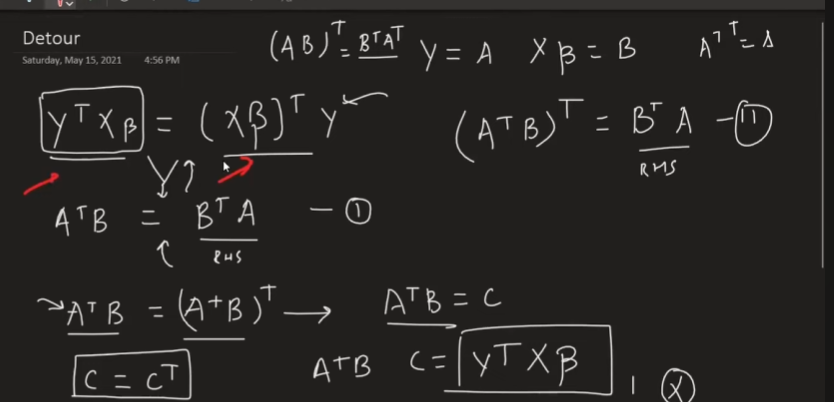 Detour
Saturday, May 15, 2021 4:56 PM
(AB)ᵀ = BᵀAᵀ Y = A Xβ = B Aᵀᵀ = A
YᵀXβ = (Xβ)ᵀ Y (AᵀB)ᵀ = BᵀA — ⑪
RHS
AᵀB = BᵀA — ①
RHS
AᵀB = (AᵀB)ᵀ → AᵀB = C
C = Cᵀ AᵀB C = YᵀXβ